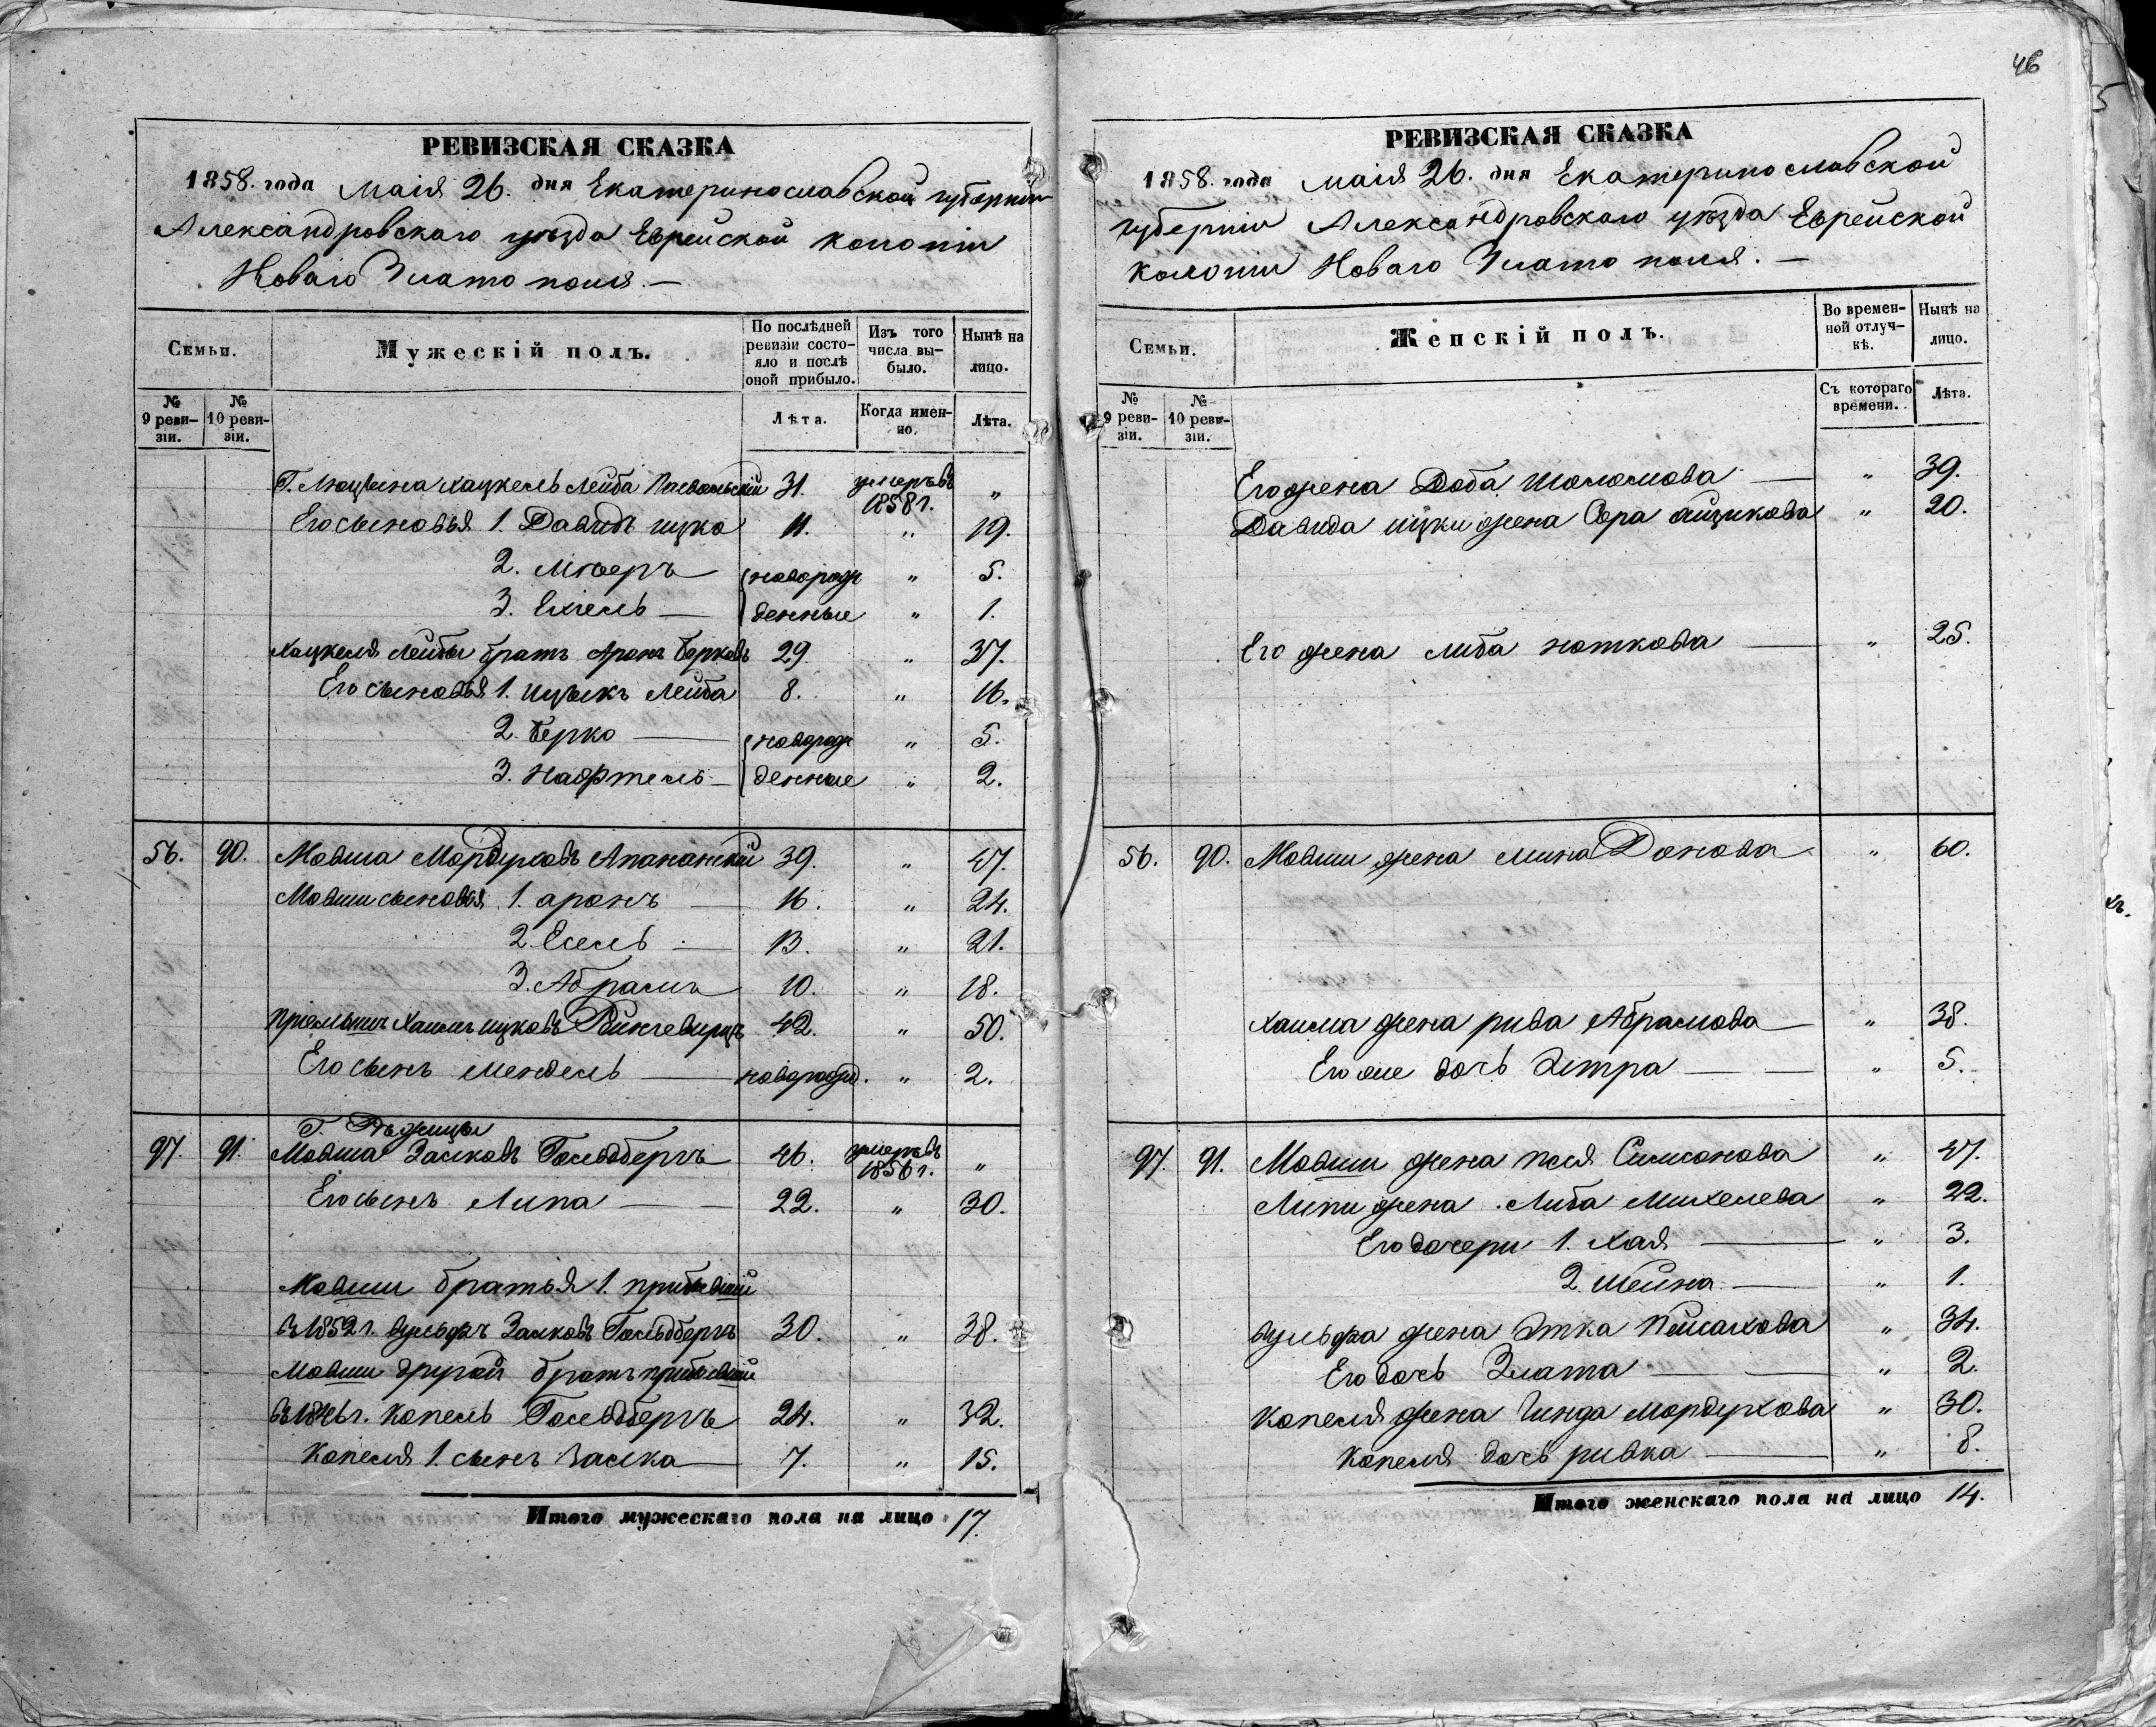 46
РЕВИЗСКАЯ СКАЗКА
1858. года Маія 26. дня Екатеринославской губерніи
Александровскаго уѣзда Еврейской колоніи
Новаго Златополя. —
Семьи.
Мужескій полъ.
По послѣдней ревизіи состояло и послѣ оной прибыло.
Изъ того числа выбыло.
Нынѣ на лицо.
№ 9 ревизіи.
№ 10 ревизіи.
Лѣта.
Когда именно.
Лѣта.
Г. Люцына Хацкель Лейба 31. умеръ въ 1858 г. "
Его сыновья 1. Давидъ ицко 11. " 19.
2. Мееръ новорож " 5.
3. Ехіель — денные " 1.
Хацкеля Лейбы братъ Аронъ Берковъ 29. " 37.
Его сыновья 1. ицыкъ Лейба 8. " 16.
2. Берко — новорож " 5.
3. Нафтель — денные " 2.
56. 90. Мовша Мордуховъ 39. " 47.
Мовши сыновья 1. аронъ — 16. " 24.
2. Есель — 13. " 21.
3. Абрамъ 10. " 18.
Пріемышъ Хаимъ ицковъ 42. " 50.
Его сынъ мендель — новорожд. " 2.
Г. Рѣжицы
97. 91. Мовша Залковъ Гольдбергъ 46. умеръ въ 1856 г. "
Его сынъ Липа — 22. " 30.
Мовши братья 1. прибывшій
въ 1852 г. вульфъ Залковъ Гольдбергъ 30. " 38.
Мовши другой братъ прибывшій
въ 1846 г. Копель Гольдбергъ 24. " 32.
Копеля 1. сынъ Залка — 7. " 15.
Итого мужескаго пола на лицо 17.
РЕВИЗСКАЯ СКАЗКА
1858. года маія 26. дня Екатеринославской
губерніи Александровскаго уѣзда Еврейской
колоніи Новаго Златополя. —
Семьи.
Женскій полъ.
Во временной отлучкѣ.
Нынѣ на лицо.
№ 9 ревизіи.
№ 10 ревизіи.
Съ котораго времени.
Лѣта.
Его жена Доба Шоломова — " 39.
Давида ицки жена Сора айзикова " 20.
Его жена либаноткова — " 25.
56. 90. Мовши жена мина Донова " 60.
Хаима жена рива Абрамова — " 38.
Его же дочь Эстра — " 5.
97. 91. Мовши жена песя Симонова " 47.
Липи жена Либа Михелева " 22.
Его дочери 1. Хая — " 3.
2. Шейна — " 1.
вульфа жена Этка Пейсахова " 34.
Его дочь Злата — " 2.
Копеля жена Гинда мордухова " 30.
Копеля дочь ривка — " 8.
Итого женскаго пола на лицо 14.